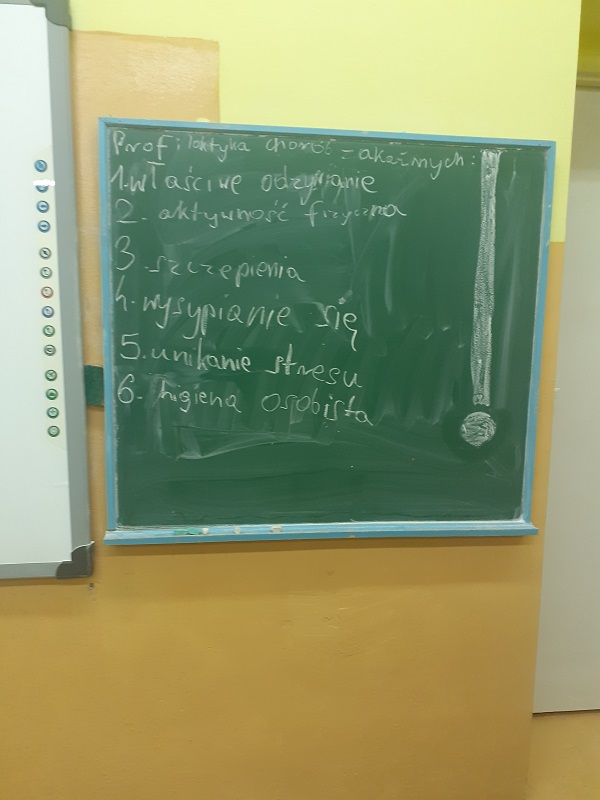 Profilaktyka chorób zakaźnych:
1. właściwe odżywianie
2. aktywność fizyczna
3. szczepienia
4. wysypianie się
5. unikanie stresu
6. higiena osobista